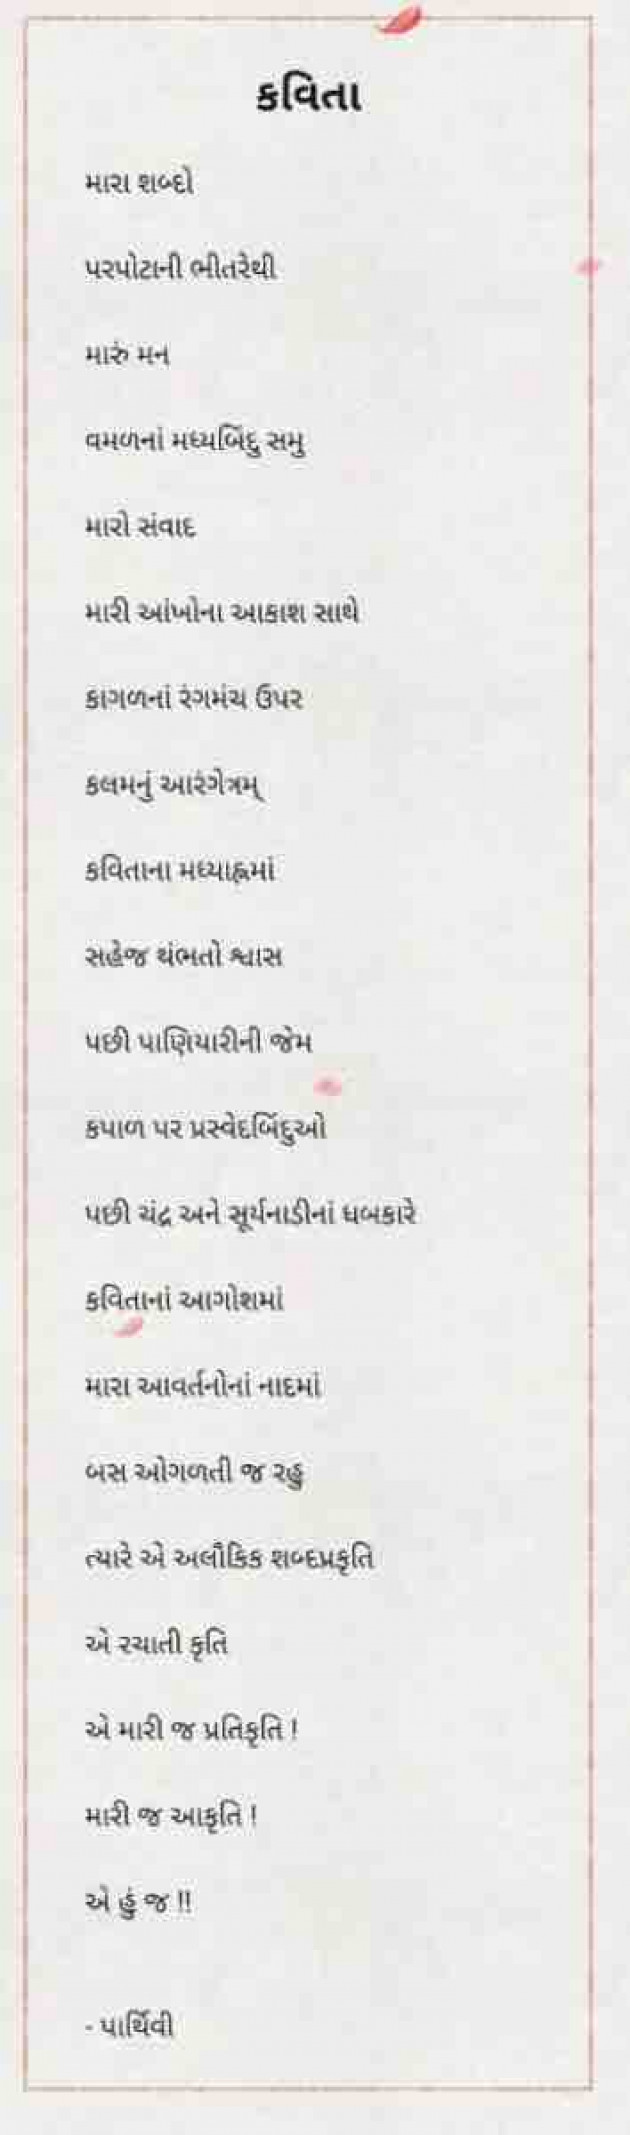 કવિતા
મારા શબ્દો
પરપોટાની ભીતરેથી
મારું મન
વમળનાં મધ્યબિંદુ સમુ
મારો સંવાદ
મારી આંખોના આકાશ સાથે
કાગળનાં રંગમંચ ઉપર
કલમનું આરંગેત્રમ્
કવિતાના મધ્યાહ્નમાં
સહેજ થંભતો શ્વાસ
પછી પાણિયારીની જેમ
કપાળ પર પ્રસ્વેદબિંદુઓ
પછી ચંદ્ર અને સૂર્યનાડીનાં ધબકારે
કવિતાનાં આગોશમાં
મારા આવર્તનોનાં નાદમાં
બસ ઓગળતી જ રહુ
ત્યારે એ અલૌકિક શબ્દપ્રકૃતિ
એ રચાતી કૃતિ
એ મારી જ પ્રતિકૃતિ !
મારી જ આકૃતિ !
એ હું જ !!
- પાર્થિવી